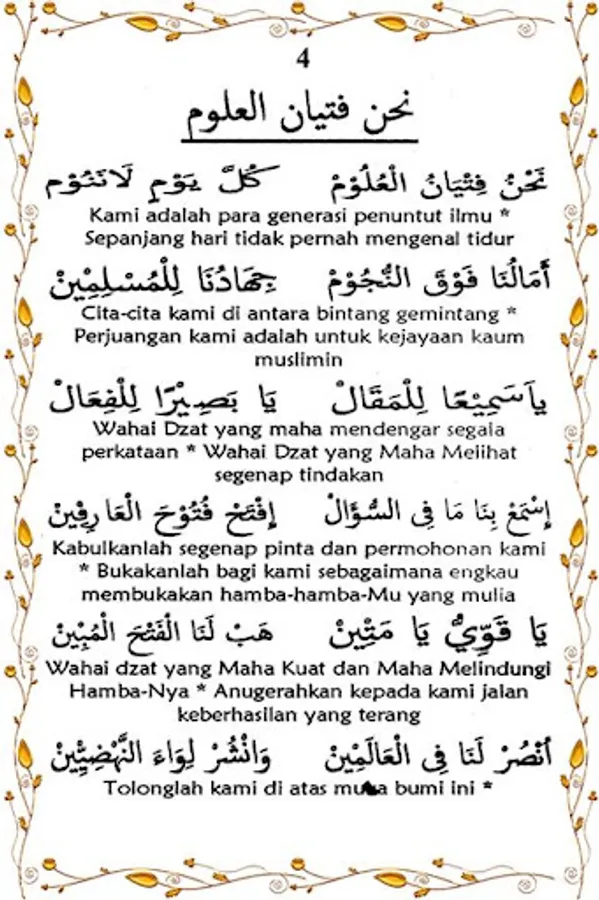 4
نحن فتيان العلوم
نَحْنُ فِتْيَانُ الْعُلُوْمْ كُلَّ يَوْمٍ لَانَنُوْم
Kami adalah para generasi penuntut ilmu *
Sepanjang hari tidak pernah mengenal tidur
أَمَالُنَا فَوْقَ النُّجُوْمْ جِهَادُنَا لِلْمُسْلِمِيْنْ
Cita-cita kami di antara bintang gemintang *
Perjuangan kami adalah untuk kejayaan kaum
muslimin
يَاسَمِيْعًا لِلْمَقَالْ يَا بَصِيْرًا لِلْفِعَالْ
Wahai Dzat yang maha mendengar segala
perkataan * Wahai Dzat yang Maha Melihat
segenap tindakan
إِسْمَعْ بِنَا مَا فِى السُّؤَالْ إِفْتَحْ فُتُوْحَ الْعَارِفِيْنْ
Kabulkanlah segenap pinta dan permohonan kami
* Bukakanlah bagi kami sebagaimana engkau
membukakan hamba-hamba-Mu yang mulia
يَا قَوِيُّ يَا مَتِيْنْ هَبْ لَنَا الْفَتْحَ الْمُبِيْنْ
Wahai dzat yang Maha Kuat dan Maha Melindungi
Hamba-Nya * Anugerahkan kepada kami jalan
keberhasilan yang terang
أُنْصُرْ لَنَا فِى الْعَالَمِيْنْ وَانْشُرْ لِوَاءَ النَّهْضِيِّيْنْ
Tolonglah kami di atas muka bumi ini *